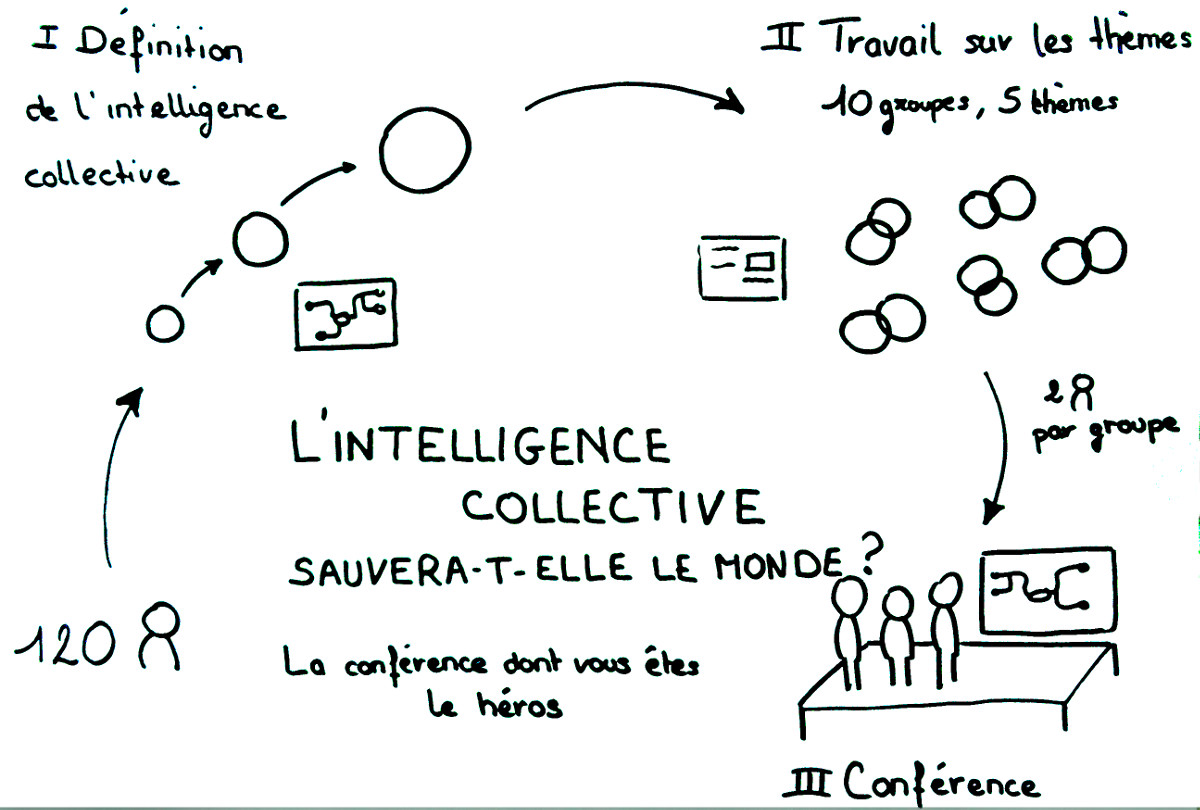 I Définition
de l'intelligence
collective
II Travail sur les thèmes
10 groupes, 5 thèmes
2
par groupe
L'INTELLIGENCE
COLLECTIVE
SAUVERA-T-ELLE LE MONDE ?
120
La conférence dont vous êtes
le héros
III Conférence